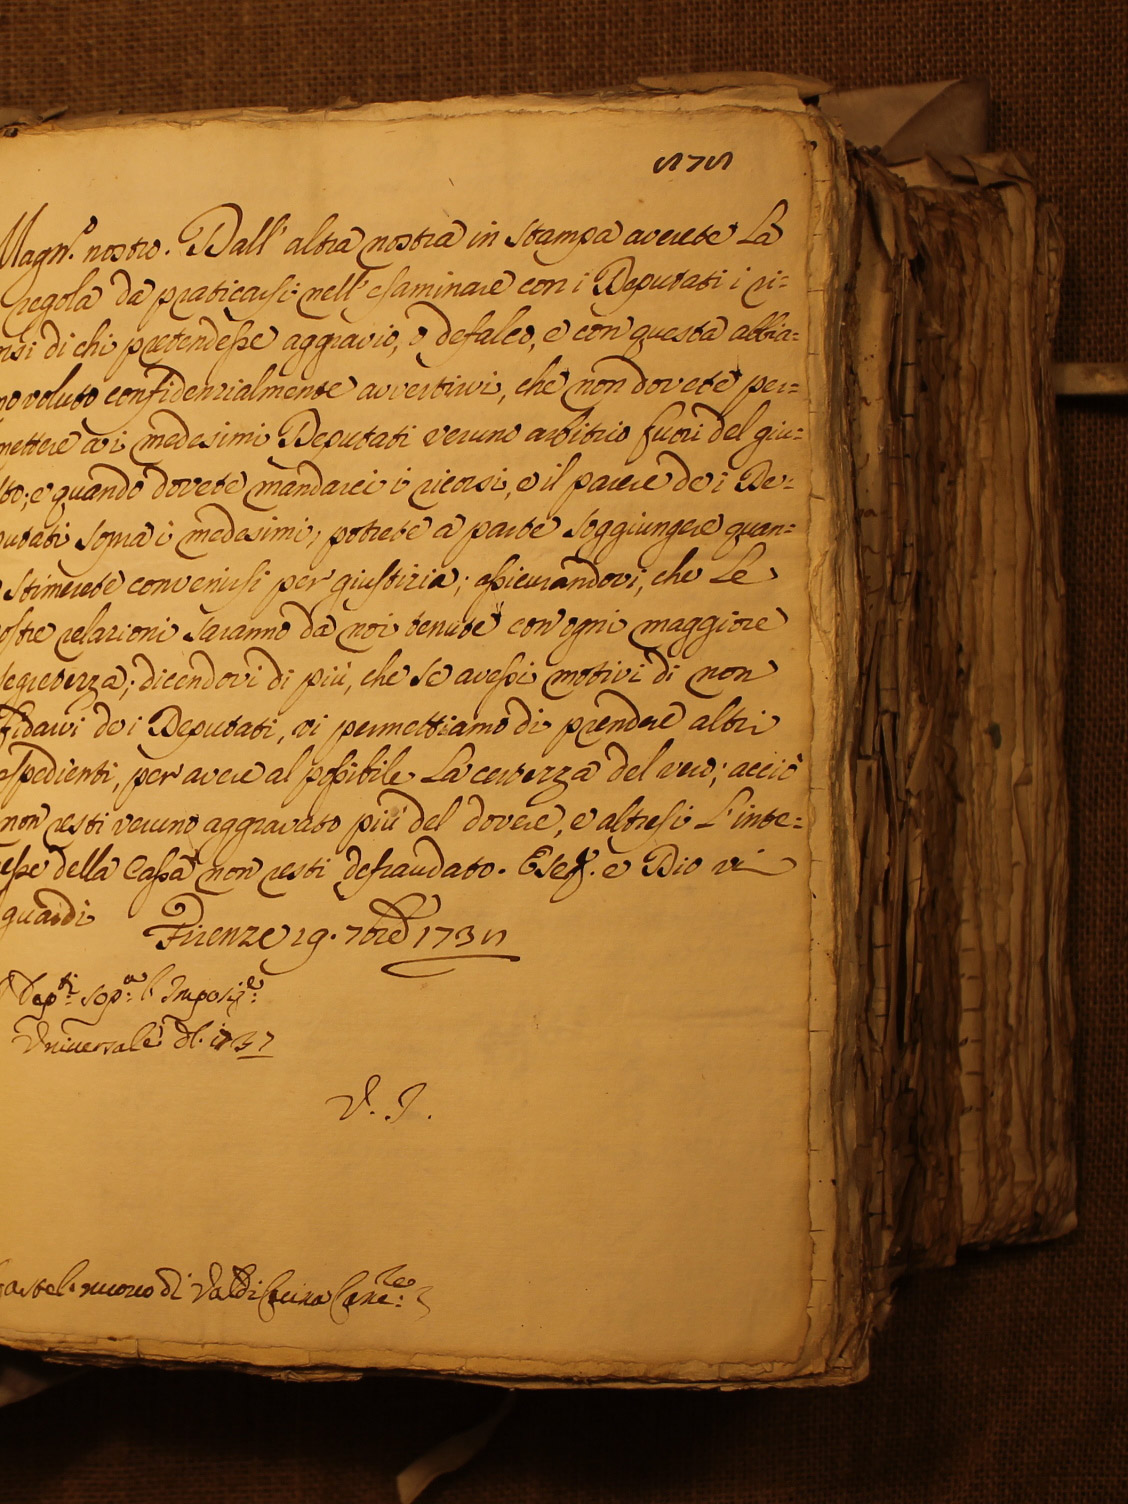 575
Magn.o nostro. Dall' altra nostra in stampa averete La
regola da praticarsi nell' esaminare con i Deputati i ri=
nsi di chi pretendesse aggravio, o defalco, e con questa abbia=
mo voluto confidenzialmente avvertirvi, che non dovete per=
mettere a i medesimi Deputati veruno arbitrio fuori del giu=
sto; e quando dovete mandarci i ricorsi, e il parere de i De=
putati sopra i medesimi, potrete a parte soggiungere quan=
stimerete convenirsi per giustizia; assicurandovi, che Le
ostre relazioni saranno da noi tenute con ogni maggiore
segretezza; dicendovi di più, che se avessi motivi di non
fidarvi de i Deputati, vi permettiamo di prendere altri
espedienti, per avere al possibile La certezza del vero; acciò
non resti veruno aggravato più del dovere, e altresì L'inte=
resse della Cassa non resti defraudato. E Dio vi
guardi
Firenze 19. 7bre 1735
Dep.ti sop.a l'Imposiz.e
Universale del 1737
V. I.
Castel. nuovo di Val di Cecina Canc.re